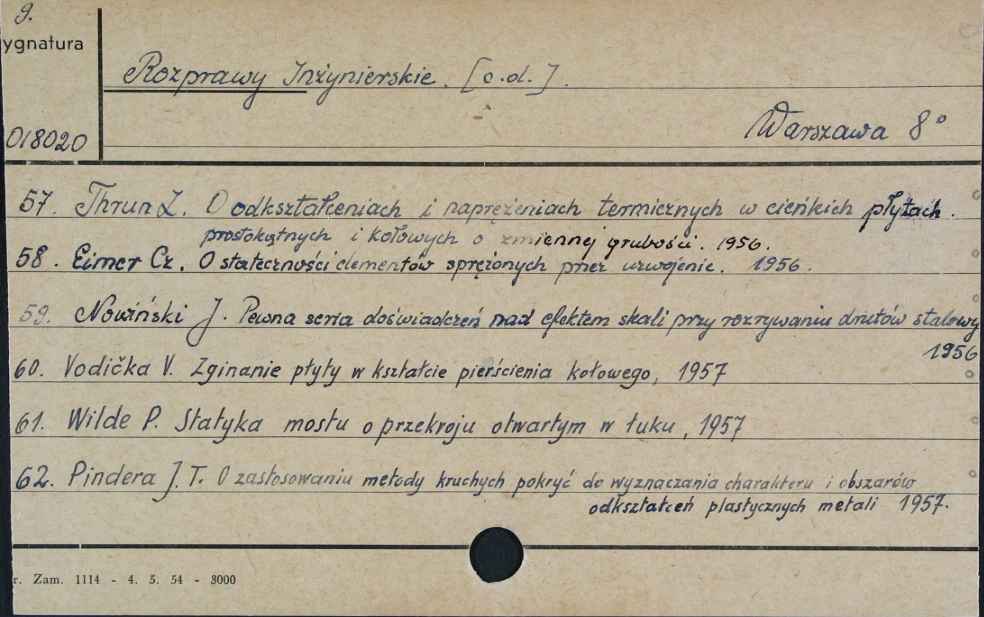 9.
ygnatura
Rozprawy Inżynierskie. [c.d.].
018020
Warszawa 8°
57. Thrun Z. O odkształceniach i naprężeniach termicznych w cieńkich płytach.
prostokątnych i kołowych o zmiennej grubości. 1956.
58. Eimer Cz. O stateczności elementów sprężonych przez uzwojenie. 1956.
59. Nowiński J. Pewna seria doświadczeń nad efektem skali przy rozrywaniu drutów stalowy
1956
60. Vodička V. Zginanie płyty w kształcie pierścienia kołowego, 1957
61. Wilde P. Statyka mostu o przekroju otwartym w łuku, 1957
62. Pindera J. T. O zastosowaniu metody kruchych pokryć do wyznaczania charakteru i obszarów
odkształceń plastycznych metali 1957.
r. Zam. 1114 - 4. 5. 54 - 3000